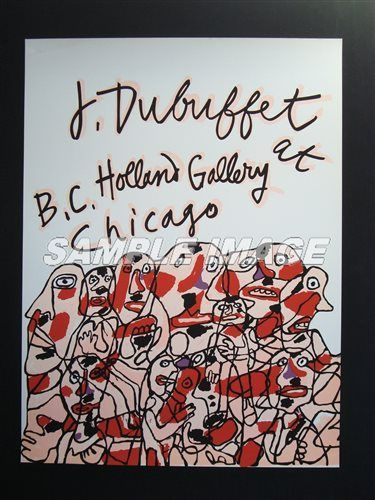 J. Dubuffet
at
B.C. Holland Gallery
Chicago
SAMPLE IMAGE